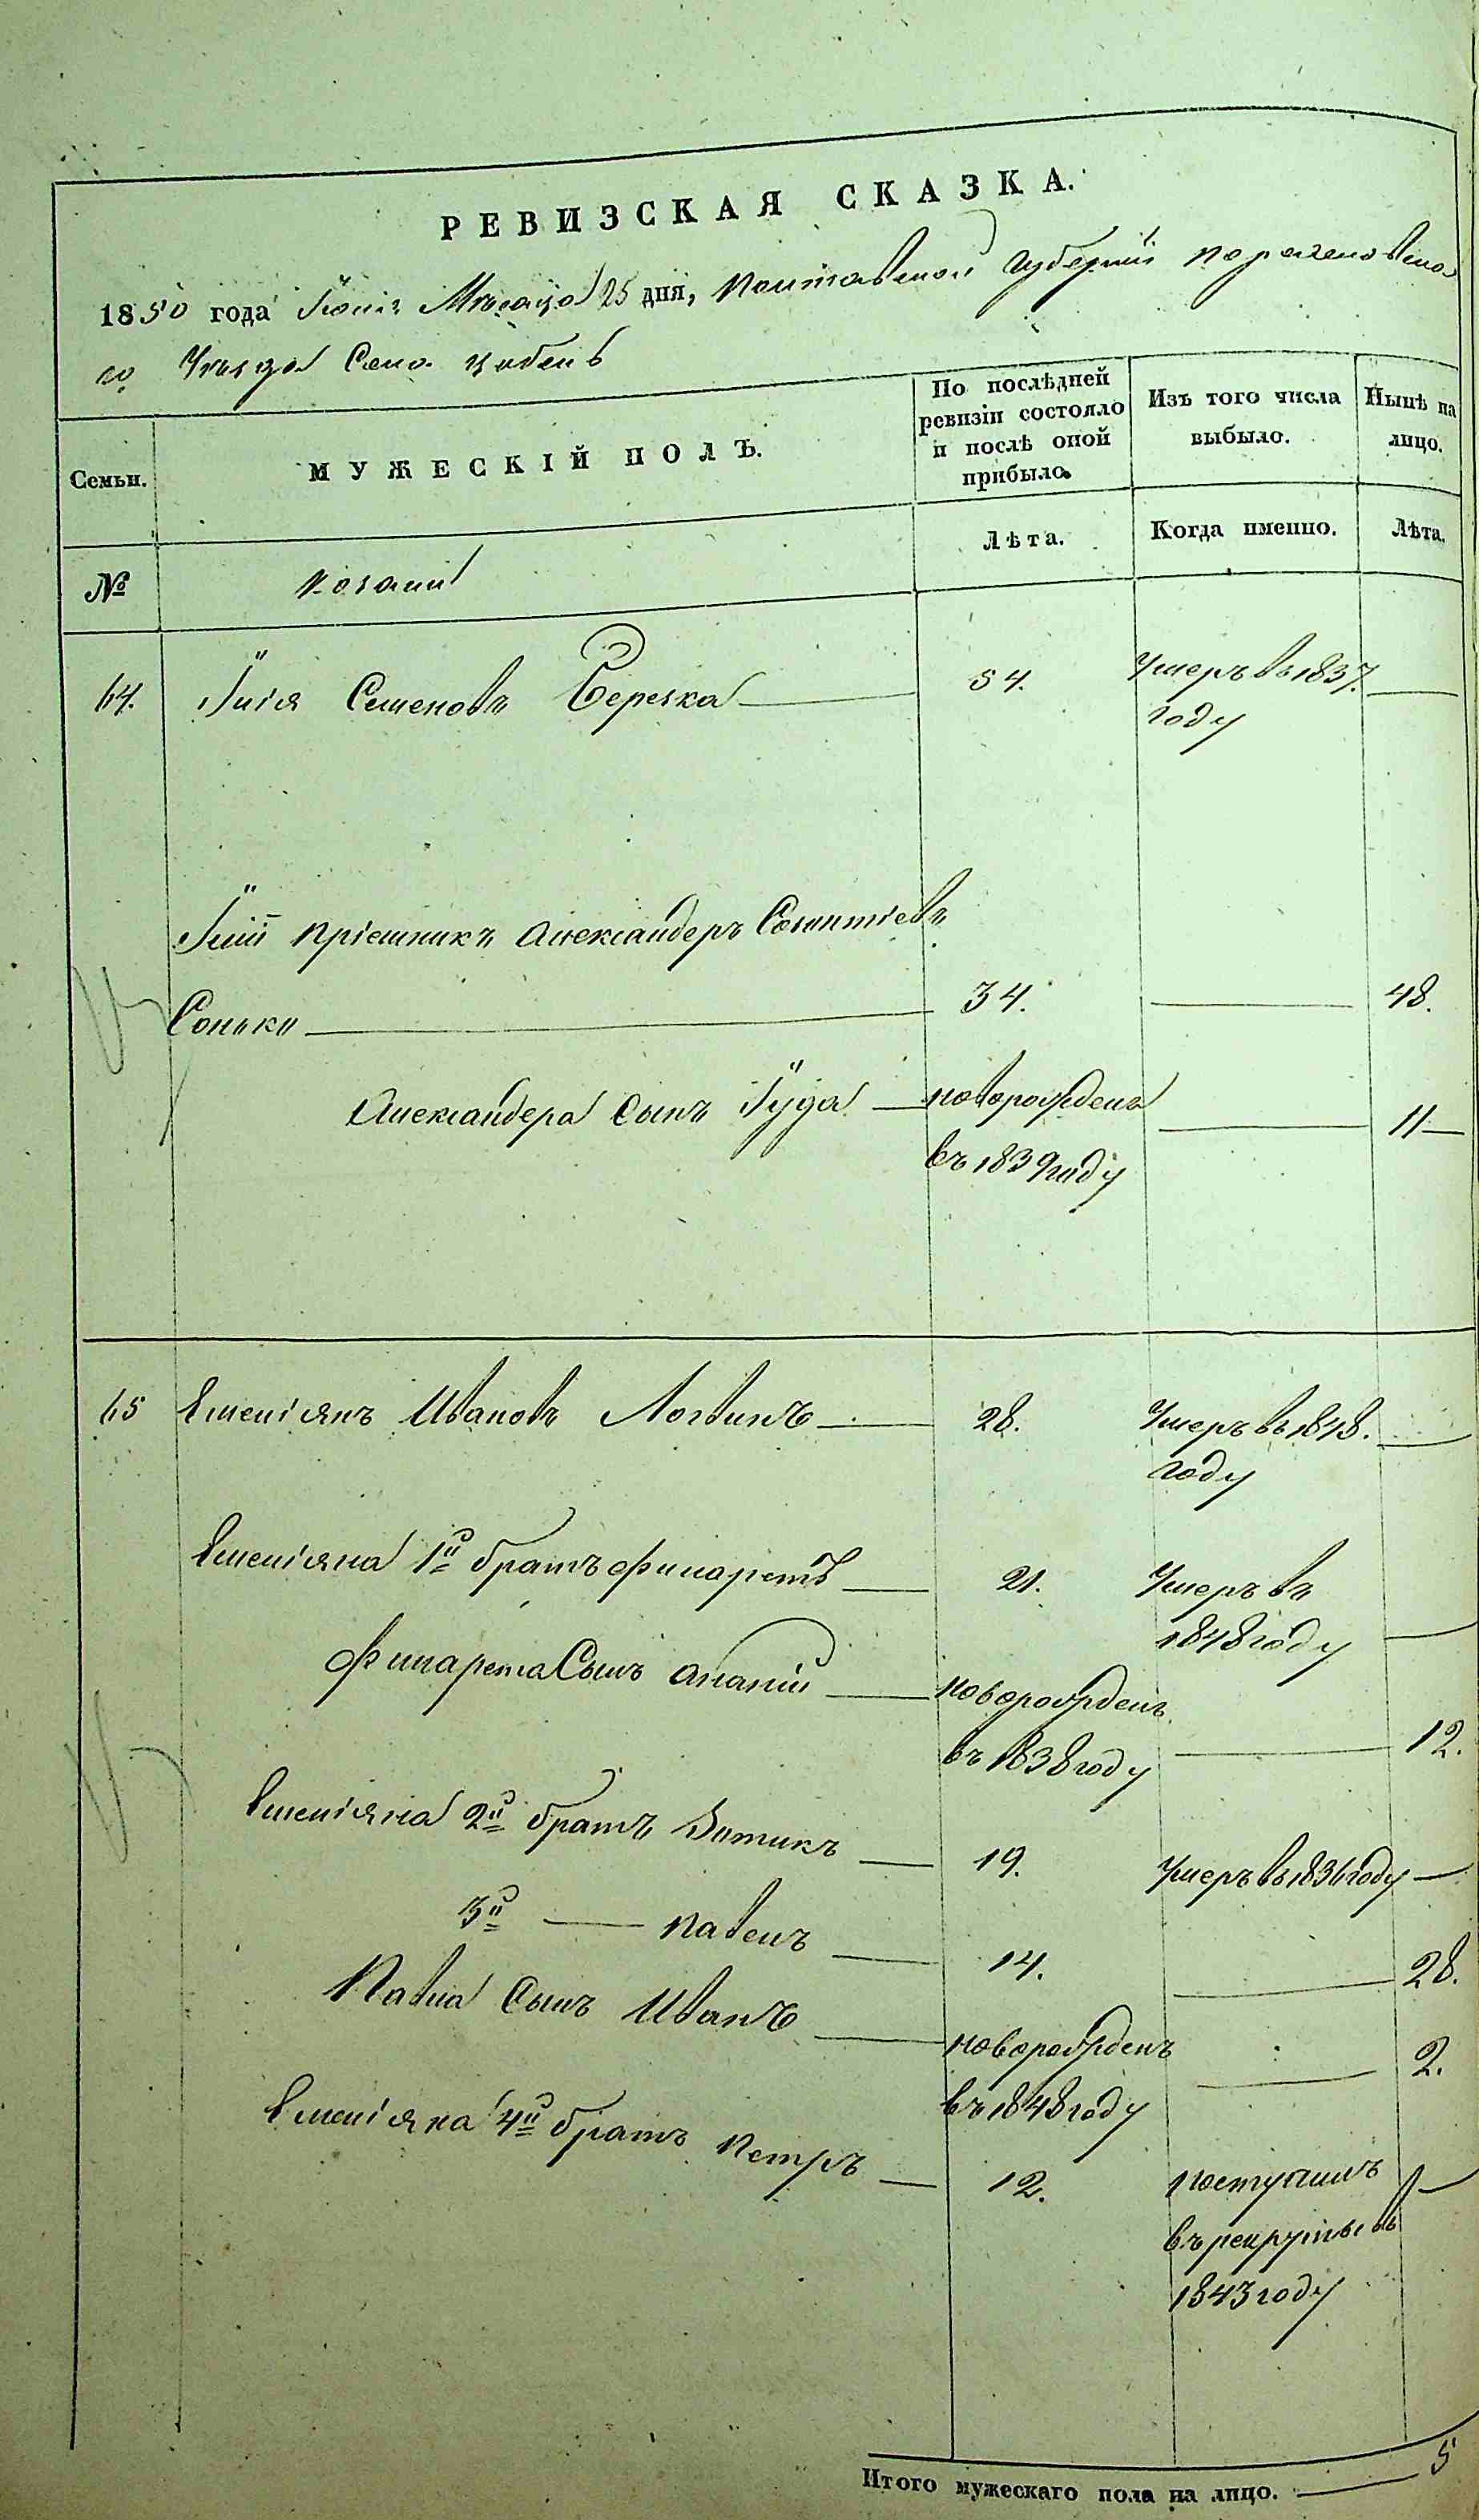 РЕВИЗСКАЯ СКАЗКА.
1850 года Іюня Мѣсяца 25 дня, Полтавской Губерніи Переяславска
го Уѣзда Село Цибель
Семьи.
МУЖЕСКІЙ ПОЛЪ.
По послѣдней ревизіи состояло и послѣ оной прибыло.
Изъ того числа выбыло.
Нынѣ на лицо.
Лѣта.
Когда именно.
Лѣта.
№
Козаки
64. Ілія Семеновъ Березка 54. Умеръ въ 1837.
году
Іліи пріемникъ Александеръ Леонтіевъ
Сонько 34. 48.
Александера Сынъ Іуда новорожденъ 11
въ 1839 году
65 Емеліянъ Ивановъ Логвинъ 28. Умеръ въ 1848.
году
Емеліяна 1й братъ Филаретъ 21. Умеръ въ
1848 году
Филарета Сынъ Ананій новорожденъ
въ 1838 году 12.
Емеліяна 2й братъ Зотикъ 19. Умеръ въ 1836 году
3й — Павелъ 14. 28.
Павла Сынъ Иванъ новорожденъ 2.
въ 1848 году
Емеліяна 4й братъ Петръ 12. поступилъ
въ рекруты въ
1843 году
Итого мужескаго пола на лицо. 5